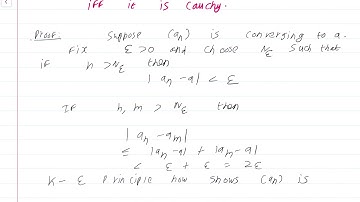 iff it is Cauchy.
Proof. Suppose (an) is converging to a.
Fix ε > 0 and choose Nε such that
if n > Nε then
| an - a | < ε
If n, m > Nε then
| an - am |
≤ | an - a | + | am - a |
< ε + ε = 2ε
K - ε Principle now shows (an) is